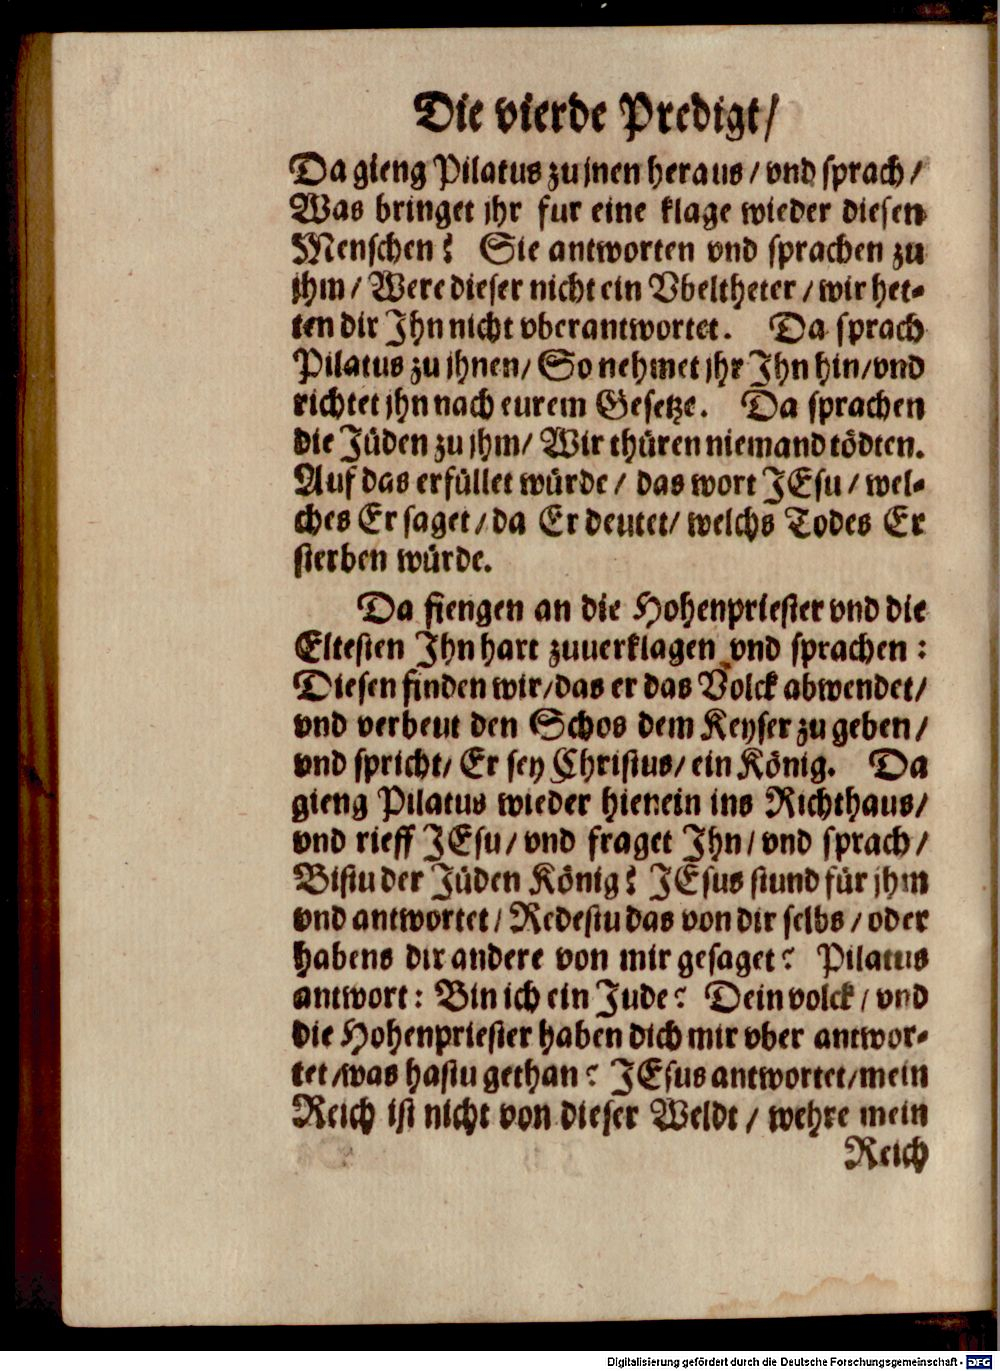 Die vierde Predigt/
Da gieng Pilatus zu jnen heraus/ vnd sprach/
Was bringet jhr fur eine klage wieder diesen
Menschen? Sie antworten vnd sprachen zu
jhm/ Were dieser nicht ein Vbeltheter/ wir het-
ten dir Jhn nicht vberantwortet. Da sprach
Pilatus zu jhnen/ So nehmet jhr Jhn hin/ vnd
richtet jhn nach eurem Gesetze. Da sprachen
die Jüden zu jhm/ Wir thüren niemand tödten.
Auf das erfüllet würde/ das wort JEsu/ wel-
ches Er saget/ da Er deutet/ welchs Todes Er
sterben würde.
Da fiengen an die Hohenpriester vnd die
Eltesten Jhn hart zuuerklagen vnd sprachen:
Diesen finden wir/ das er das Volck abwendet/
vnd verbeut den Schos dem Keyser zu geben/
vnd spricht/ Er sey Christus/ ein König. Da
gieng Pilatus wieder hienein ins Richthaus/
vnd rieff JEsu/ vnd fraget Jhn/ vnd sprach/
Bistu der Jüden König? JEsus stund für jhm
vnd antwortet/ Redestu das von dir selbs/ oder
habens dir andere von mir gesaget? Pilatus
antwort: Bin ich ein Jude? Dein volck/ vnd
die Hohenpriester haben dich mir vber antwor-
tet/ was hastu gethan? JEsus antwortet/ mein
Reich ist nicht von dieser Weldt/ wehre mein
Reich
Digitalisierung gefördert durch die Deutsche Forschungsgemeinschaft - DFG